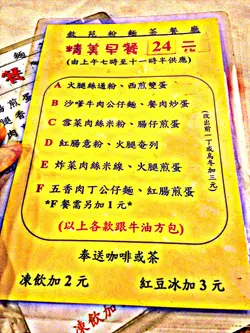 敘苑粉麵茶餐廳
精美早餐 24 元
(由上午七時至十一時半供應)
A 火腿絲通粉、西煎雙蛋
B 沙嗲牛肉公仔麵、餐肉炒蛋
C 雪菜肉絲米粉、腸仔煎蛋
D 紅腸意粉、火腿奄列
E 炸菜肉絲米線、火腿煎蛋
F 五香肉丁公仔麵、紅腸煎蛋
*F餐需另加1元*
(改出前一丁或烏冬加三元)
(以上各款跟牛油方包)
奉送咖啡或茶
凍飲加 2 元
紅豆冰加 3 元
餐